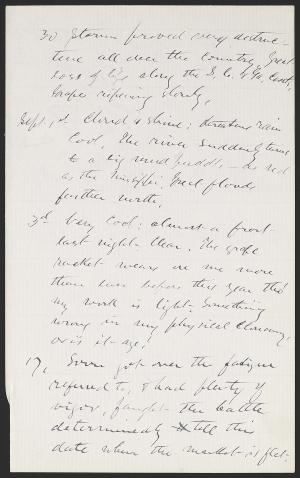 30 Storm proved very destruc-
tive all over the country. Great
loss of life along the S. C. & Ga. Coast.
Grapes ripening slowly.
Sept. 1st Cloud & shine: threatens rain
Cool. The river suddenly turns
to a big mud puddle - as red
as the Missouri. Great floods
farther north.
3d Very Cool; almost a frost
last night. Clear. The grape
racket wears on me more
than ever before this year tho'
my work is light. Something
wrong in my physical economy,
or is it age?
17, Soon got over the fatigue
referred to, & had plenty of
vigor, fought the battle
determinedly till this
date when the market is flat.